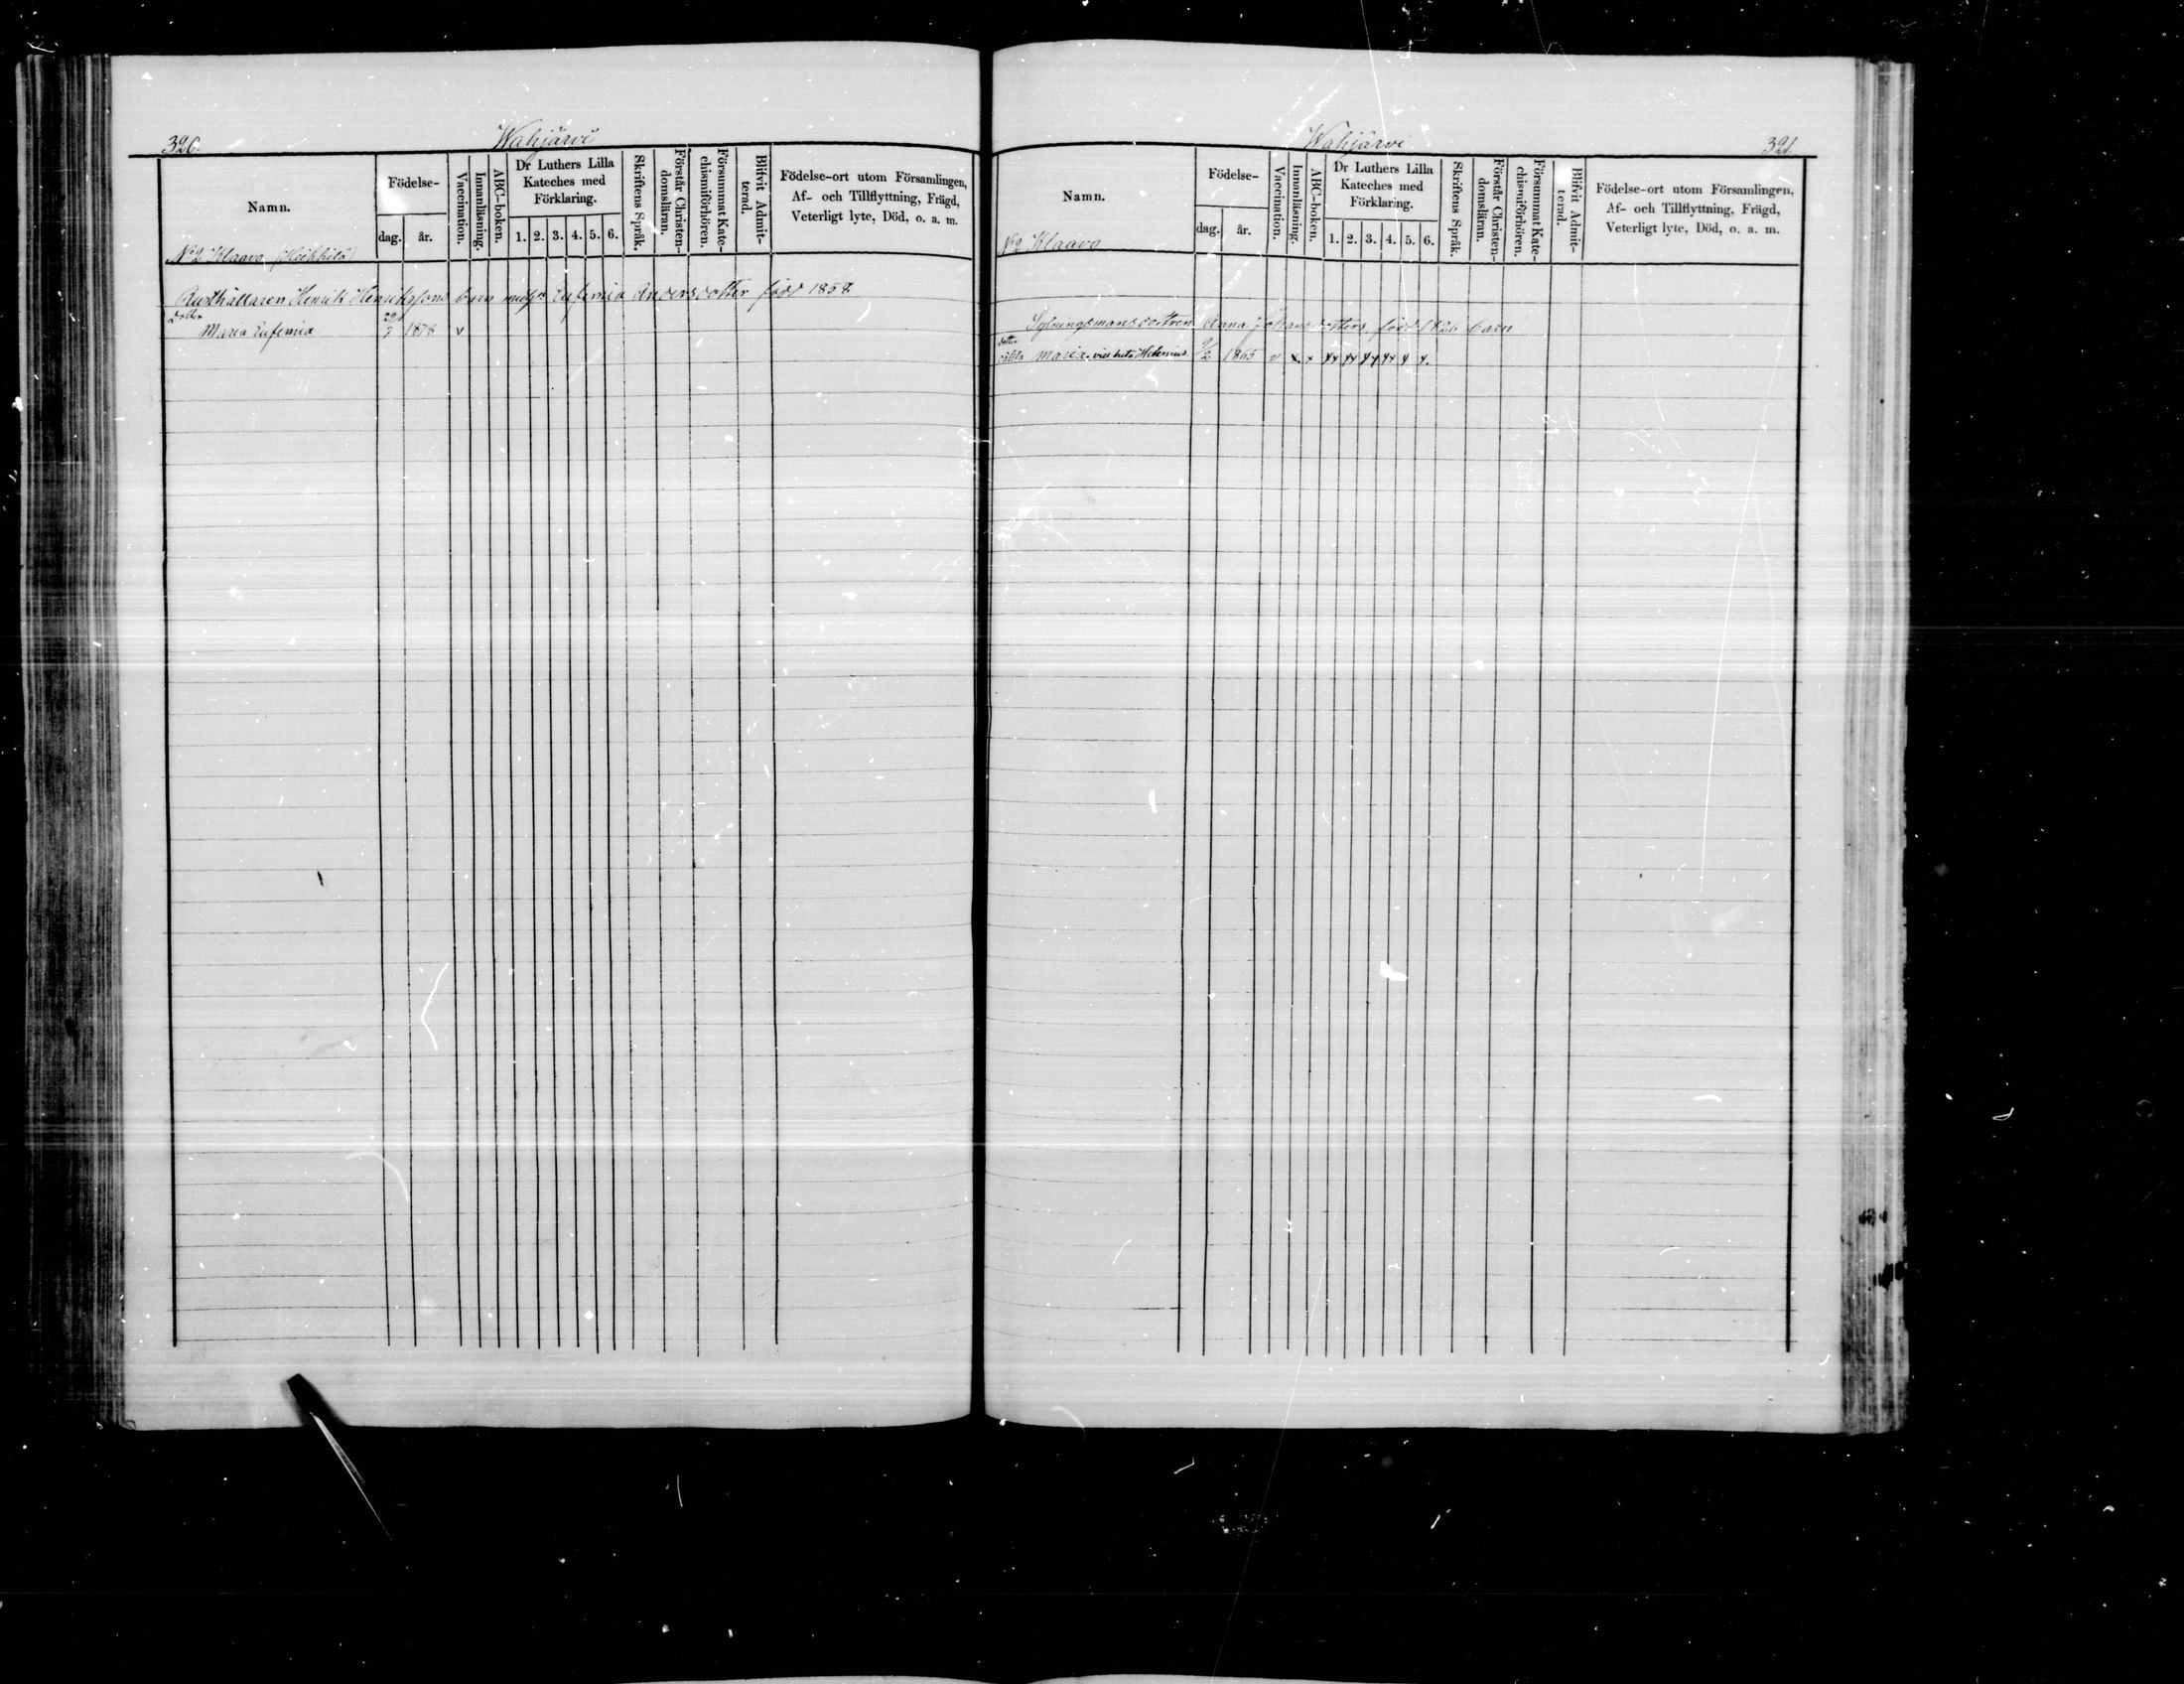 320. Wahjärvi
Namn. Födelse- dag. år. Vaccination. Innanläsning. ABC-boken. Dr Luthers Lilla Kateches med Förklaring. 1. 2. 3. 4. 5. 6. Skriftens Språk. Förstår Christen-domsläran. Försummat Kate-chismiförhören. Blifvit Admit-terad. Födelse-ort utom Församlingen, Af- och Tillflyttning, Frägd, Veterligt lyte, Död, o. a. m.
No 2 Klaava (Heikkilä)
Rusthållaren Henrik Henrikssons barn med h. Eufemia Andersdotter född 1858
Dotter
Maria Eufemia 29/7 1878 v
Wahjärvi 321.
Namn. Födelse- dag. år. Vaccination. Innanläsning. ABC-boken. Dr Luthers Lilla Kateches med Förklaring. 1. 2. 3. 4. 5. 6. Skriftens Språk. Förstår Christen-domsläran. Försummat Kate-chismiförhören. Blifvit Admit-terad. Födelse-ort utom Församlingen, Af- och Tillflyttning, Frägd, Veterligt lyte, Död, o. a. m.
No 2 Klaava
Sytningsmansdottren Anna Johansdotters född 1826 barn
dotter
Maria vill heta Helenius 9/2 1865 v x x